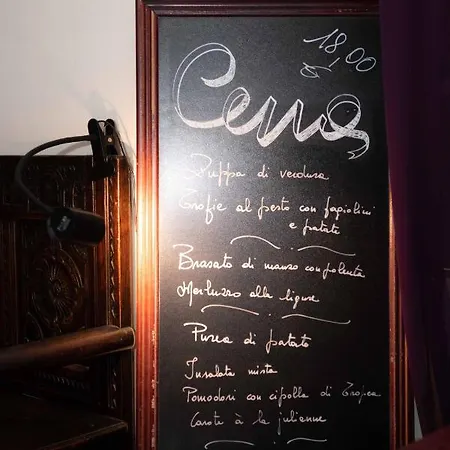 18,00
Cena
Zuppa di verdura
Trofie al pesto con fagiolini
e patate
Brasato di manzo con polenta
Merluzzo alla ligure
Purea di patate
Insalata mista
Pomodori con cipolla di Tropea
Carote à la julienne